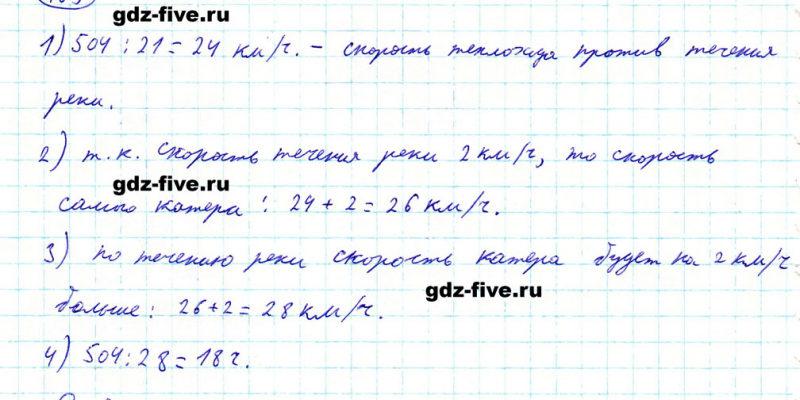 gdz-five.ru
1) 504 : 21 = 24 км/ч. - скорость теплохода против течения
реки.
2) т.к. скорость течения реки 2 км/ч, то скорость
gdz-five.ru
самого катера : 24 + 2 = 26 км/ч.
3) по течению реки скорость катера будет на 2 км/ч
gdz-five.ru
больше : 26+2 = 28 км/ч.
4) 504 : 28 = 18 ч.